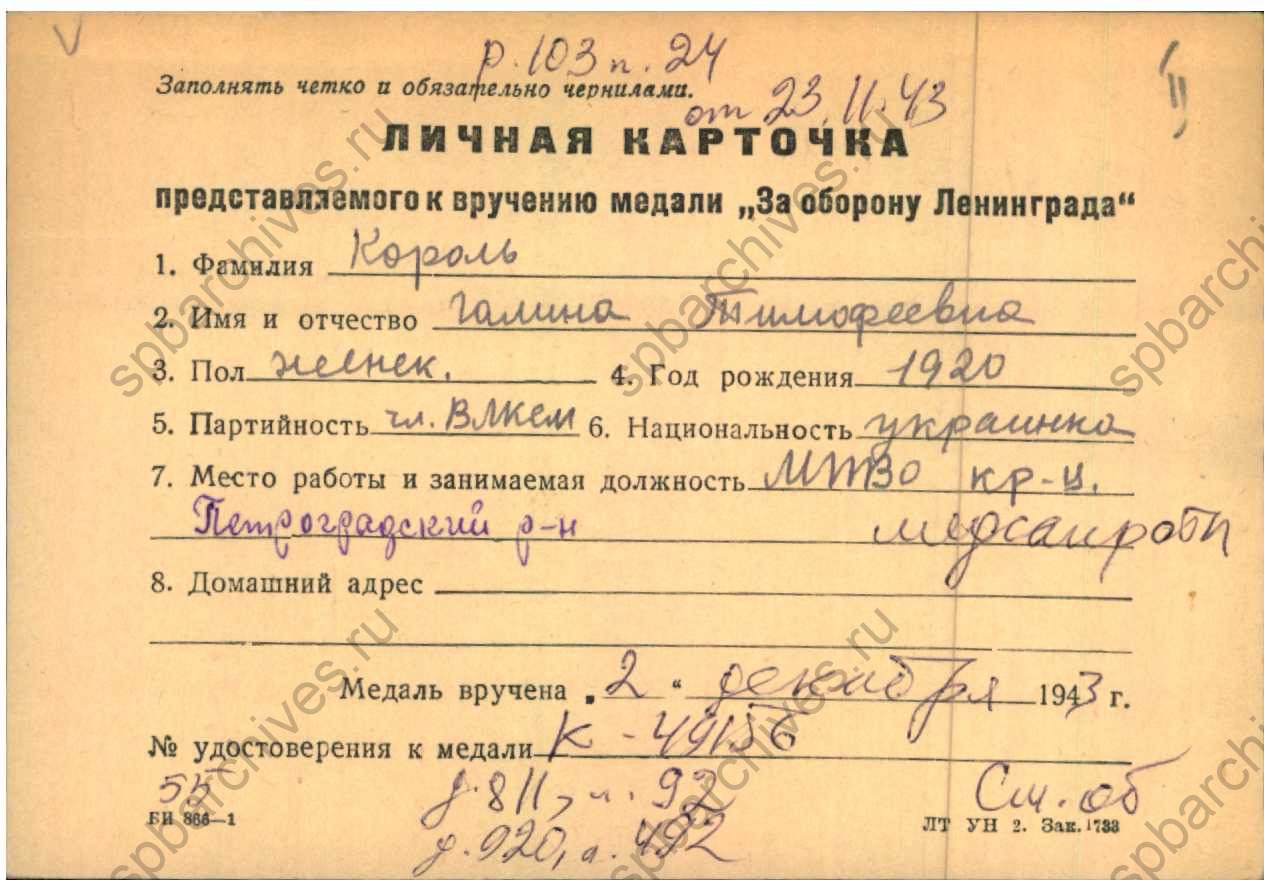 р. 103 п. 24
Заполнять четко и обязательно чернилами.
от 23.11.43
ЛИЧНАЯ КАРТОЧКА
представляемого к вручению медали „За оборону Ленинграда“
1. Фамилия Король
2. Имя и отчество Галина Тимофеевна
3. Пол женск. 4. Год рождения 1920
5. Партийность чл. ВЛКСМ 6. Национальность украинка
7. Место работы и занимаемая должность кр-ц.
Петроградский р-н медсанроты
8. Домашний адрес
Медаль вручена „2“ декабря 1943 г.
№ удостоверения к медали К-49156
55 д. 811, л. 92 См. об
БИ 866—1 д. 920, л. 492 ЛТ УН 2. Зак. 1733
spbarchives.ru